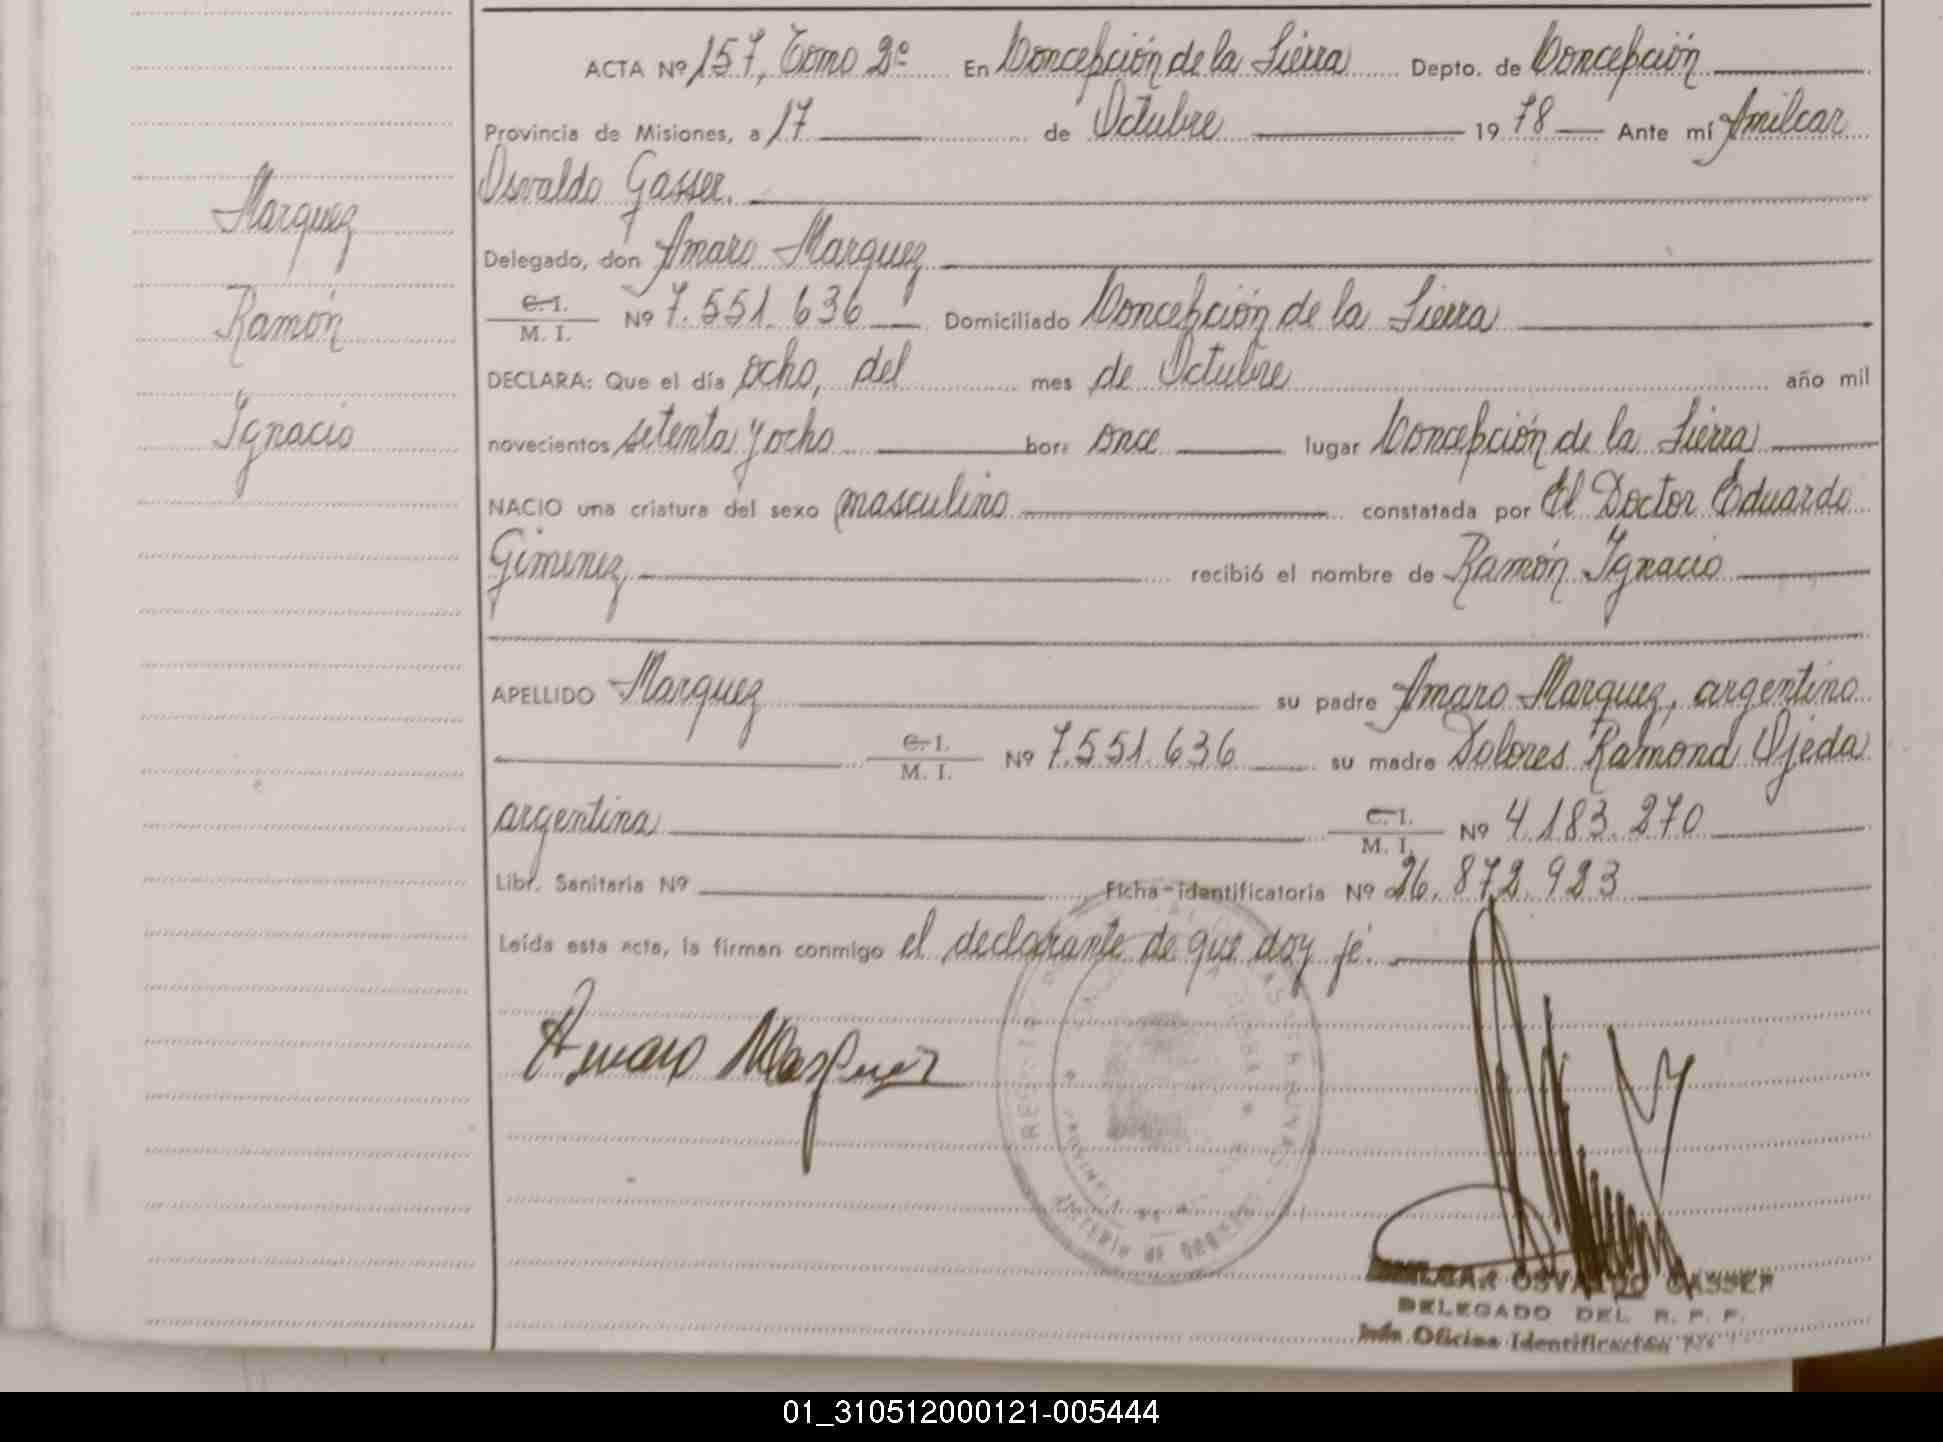 ACTA Nº 157, Tomo 2º En Concepción de la Sierra Depto. de Concepción
Provincia de Misiones, a 17 de Octubre 19 78 Ante mí Amilcar
Osvaldo Gasser.
Delegado, don Amaro Marquez
C.I. M. I. Nº 7.551.636 Domiciliado Concepción de la Sierra
DECLARA: Que el día ocho, del mes de Octubre año mil
novecientos setenta y ocho hora once lugar Concepción de la Sierra
NACIO una criatura del sexo masculino constatada por El Doctor Eduardo
Gimenez, recibió el nombre de Ramón Ignacio
APELLIDO Marquez su padre Amaro Marquez, argentino
C.I. M. I. Nº 7.551.636 su madre Dolores Ramona Ojeda
argentina C.I. M. I. Nº 4.183.270
Libr. Sanitaria Nº Ficha-identificatoria Nº 26.872.923
Leída esta acta, la firman conmigo el declarante de que doy fé.
Marquez
Ramón
Ignacio
Amaro Marquez
AMILCAR OSVALDO GASSER
DELEGADO DEL R. P. P.
Jefe Oficina Identificación
01_310512000121-005444